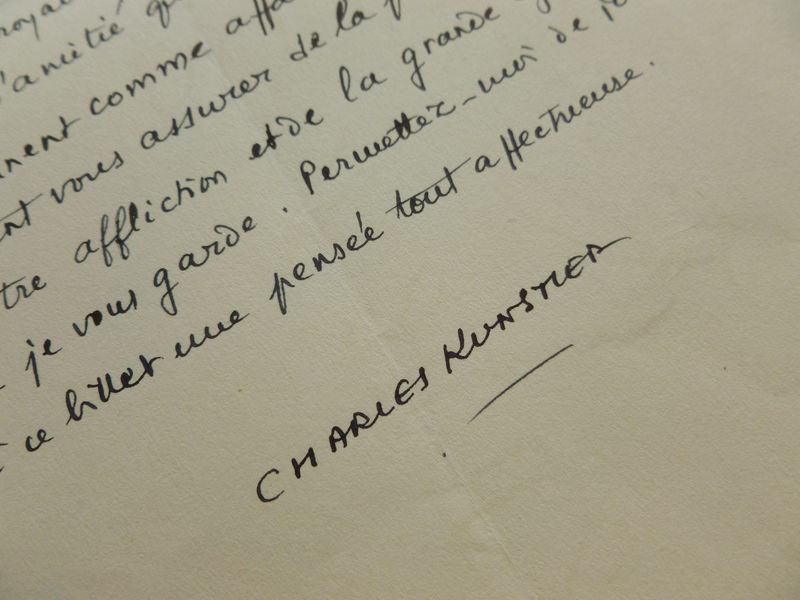 l'amitié
comme
vous assurer de la
affliction et de la grande
je vous garde. Permettez-moi de
ce billet une pensée tout affectueuse.
CHARLES KUNSTLER